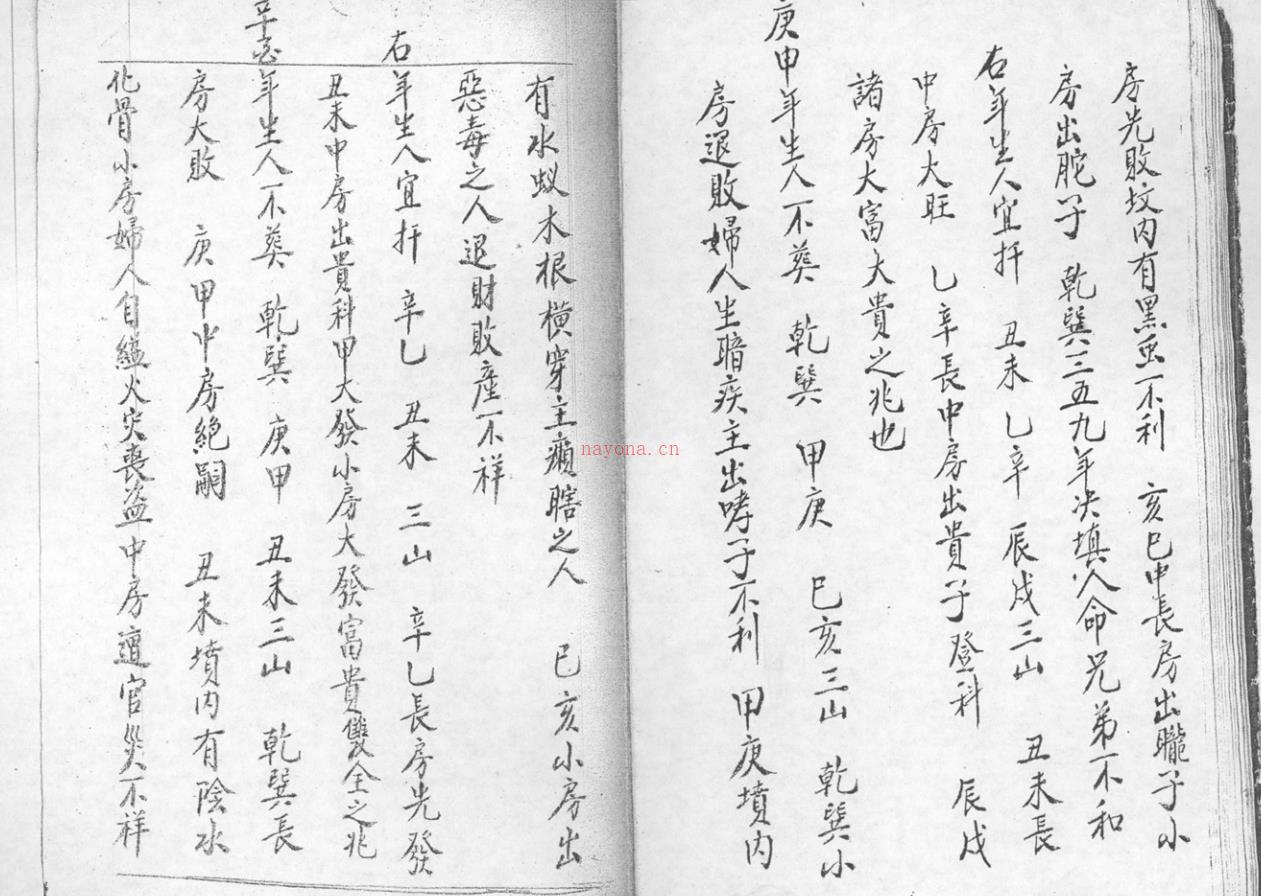 房先敗坟内有黑虫不利　亥巳中長房出矓子小
房出舵子　乾巽三五九年决填人命兄弟不和
右年生人宜扦　丑未　乙辛　辰戌三山　丑未長
中房大旺　乙辛長中房出貴子登科　辰戌
諸房大富大貴之兆也
庚申年生人不葵　乾巽　甲庚　巳亥三山　乾巽小
房退敗婦人生暗疾主出哮子不利　甲庚墳内
有水蚁木根橫穿主癩瞎之人　巳亥小房出
惡毒之人退財敗産不祥
右年生人宜扦　辛乙　丑未　三山　辛乙長房先發
丑未中房出貴科甲大發小房大發富貴雙全之兆
辛酉年生人不葵　乾巽　庚甲　丑未三山　乾巽長
房大敗　庚甲中房絕嗣　丑未墳内有陰水
化骨小房婦人自縊火灾喪盗中房遭官災不祥
nayona.cn